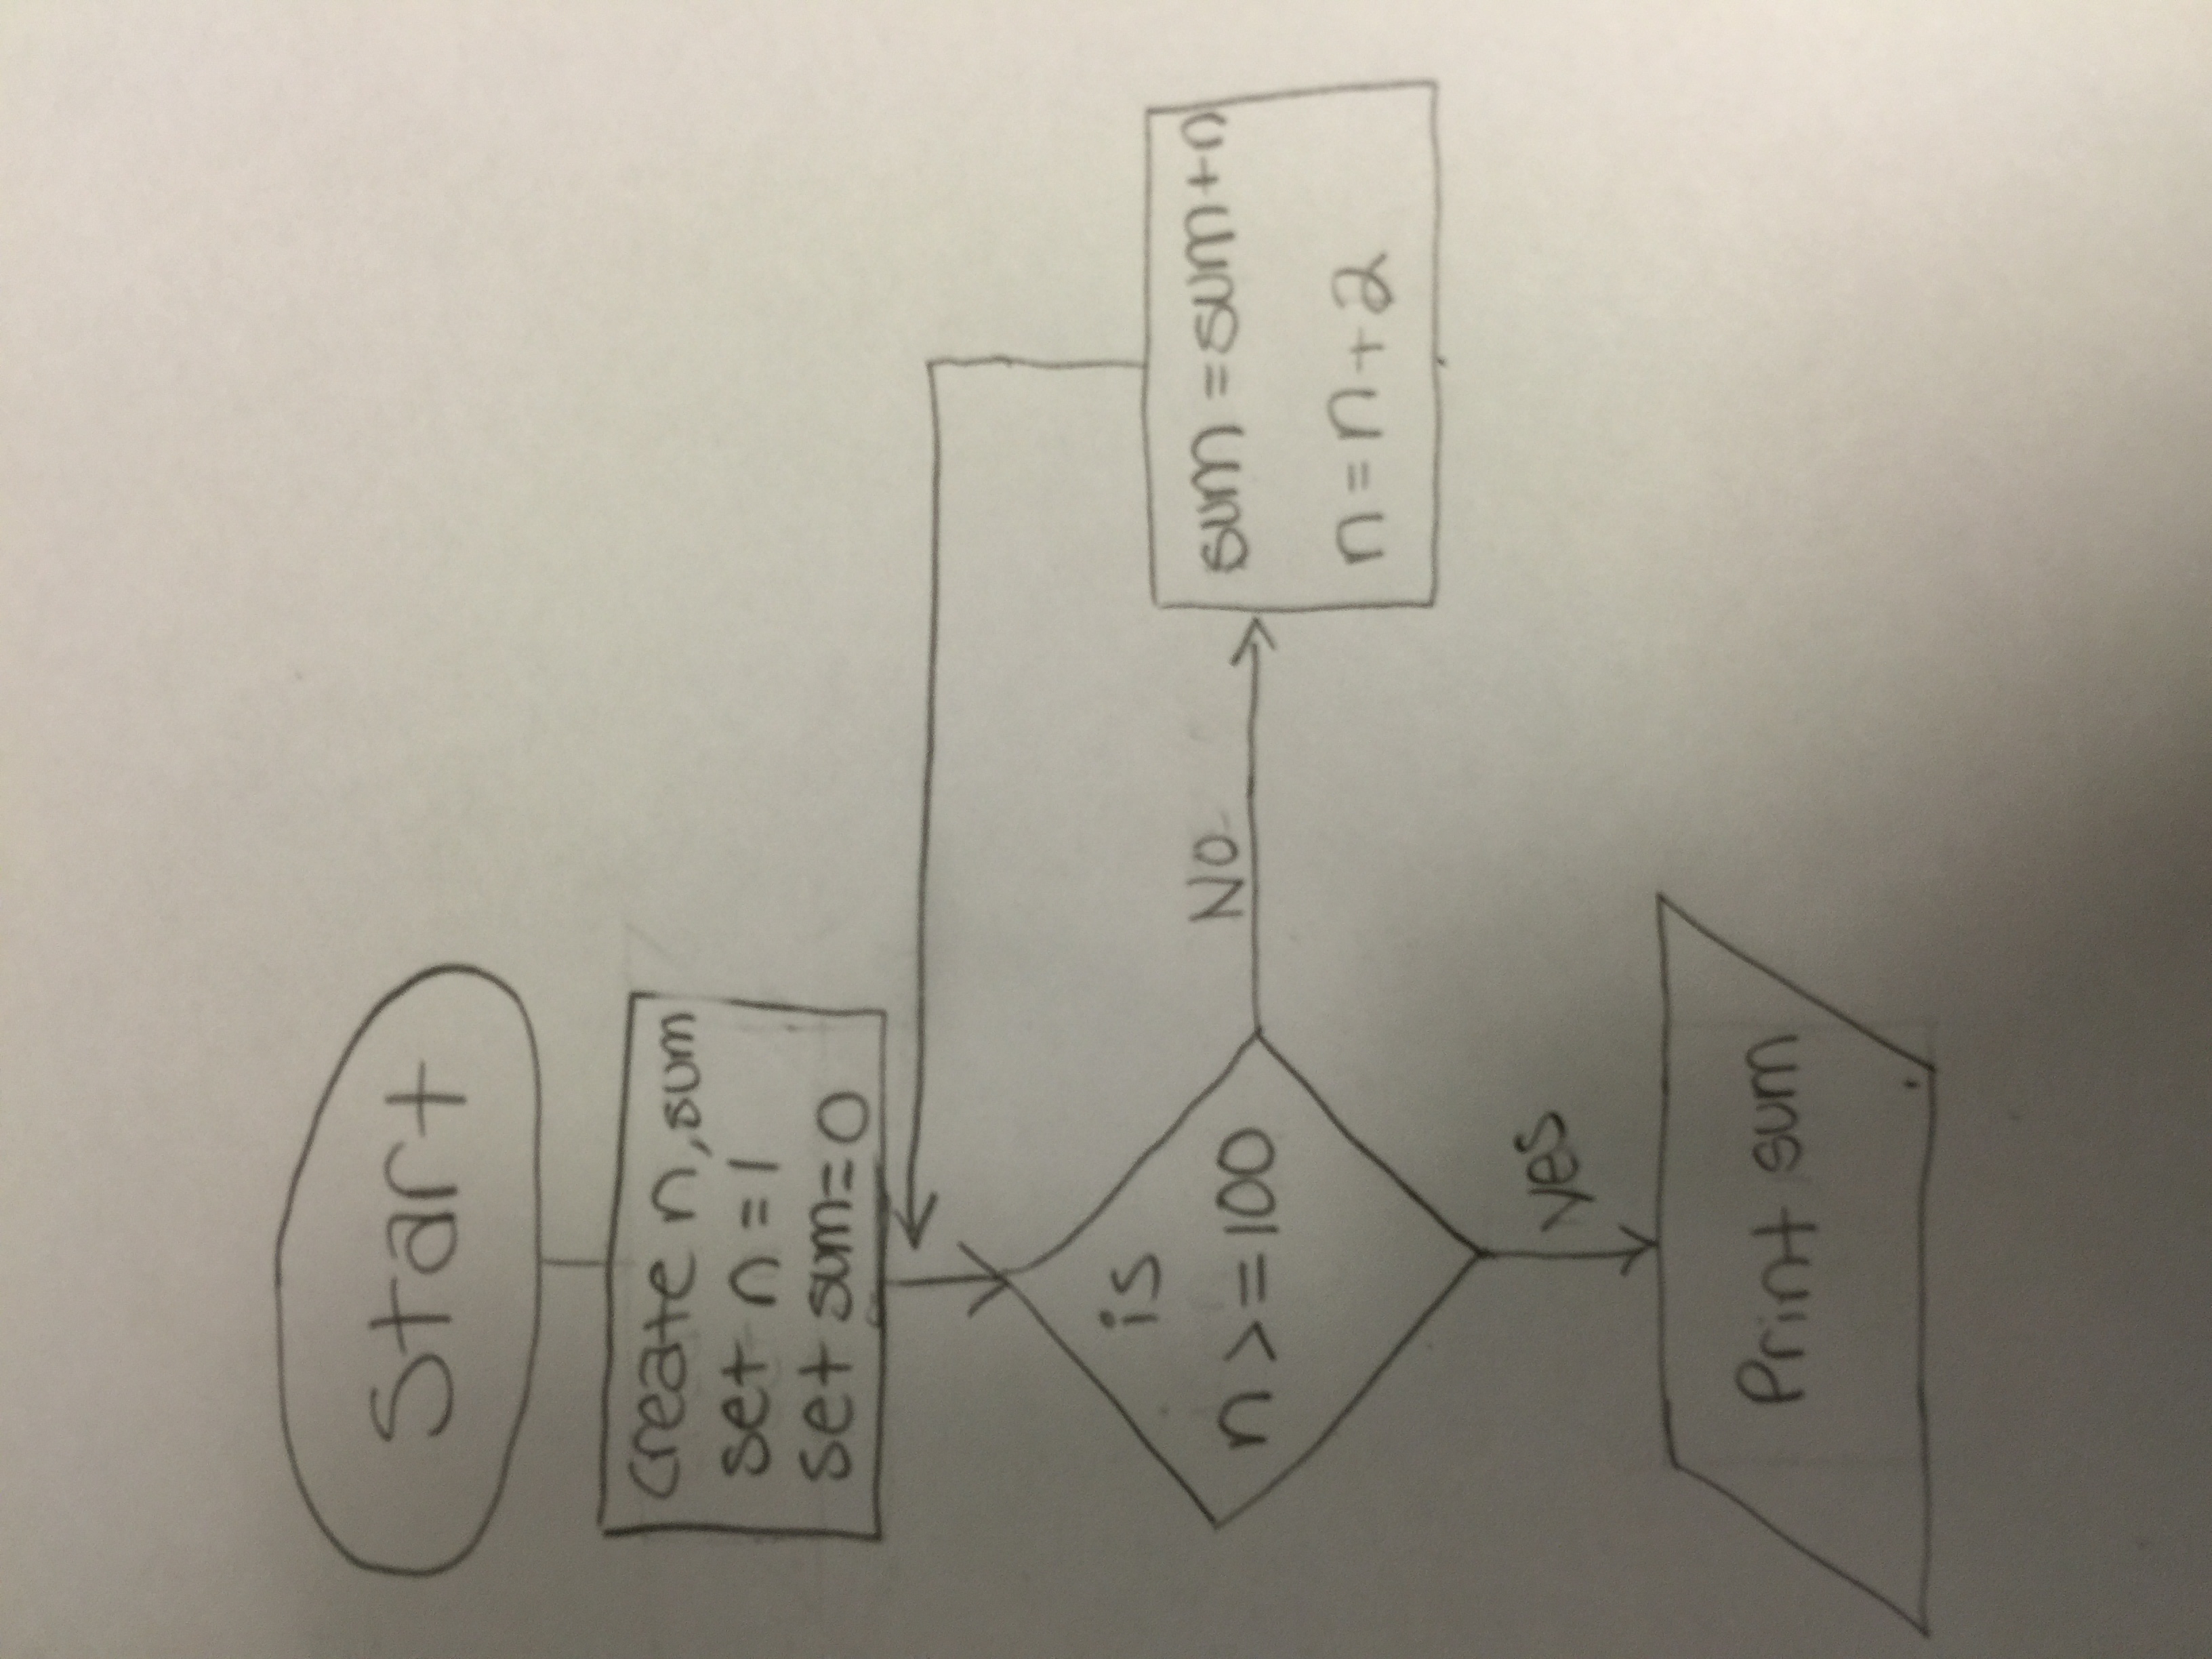 Start
create n, sum
set n = 1
set sum = 0
is
n >= 100
NO
sum = sum + n
n = n + 2
yes
Print sum